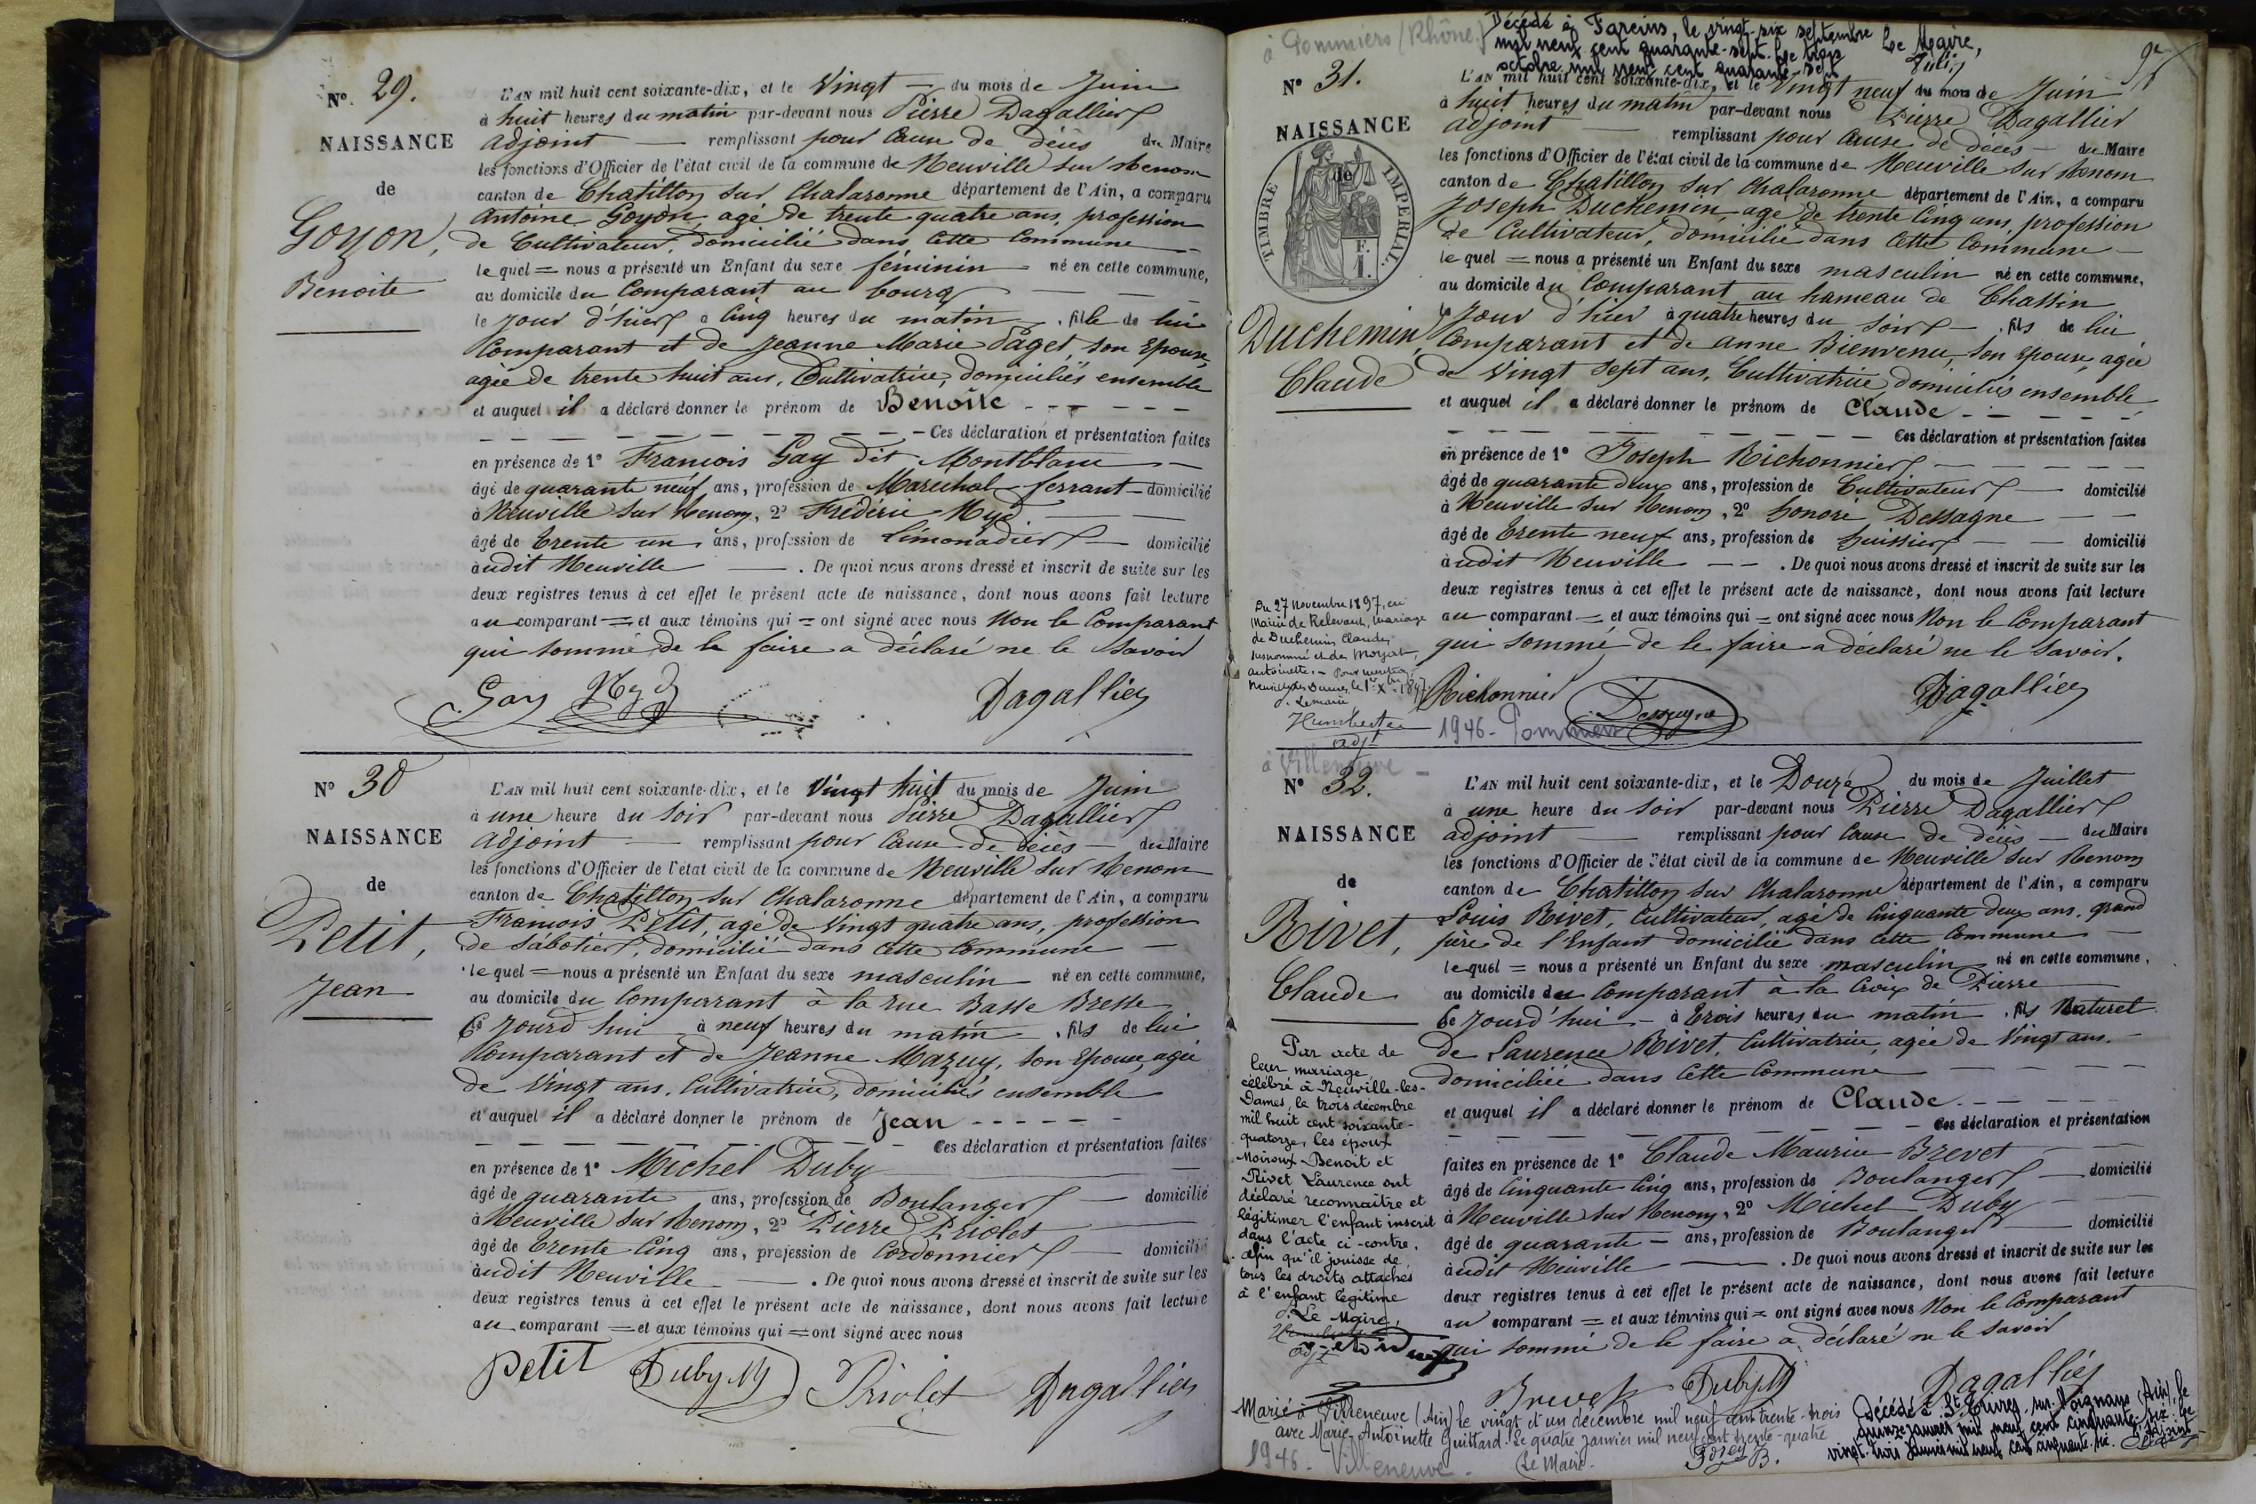 N° 29.
NAISSANCE
de
Goyon,
Benoite
L'AN mil huit cent soixante-dix, et le Vingt — du mois de Juin
à huit heures du matin par-devant nous Pierre Dagallier
adjoint — remplissant pour Cause de décès du Maire
les fonctions d'Officier de l'état civil de la commune de Neuville sur Renom
canton de Chatillon sur Chalaronne département de l'Ain, a comparu
Antoine Goyon agé de trente quatre ans, profession
de Cultivateur, domicilié dans cette Commune —
le quel = nous a présenté un Enfant du sexe féminin — né en cette commune,
au domicile du Comparant au bourg — — —
le jour d'hier à Cinq heures du matin — . fille de lui
Comparant et de Jeanne Marie Paget, son Epouse,
agée de trente huit ans, Cultivatrice, domiciliés ensemble
et auquel il a déclaré donner le prénom de Benoite - - — — —
— — — — — — — — Ces déclaration et présentation faites
en présence de 1° François Gay dit Montblanc — —
âgé de quarante neuf ans, profession de Marechal ferrant — domicilié
à Neuville sur Renom, 2° Frédéric Nyd — —
âgé de trente un ans, profession de limonadier — domicilié
audit Neuville — . De quoi nous avons dressé et inscrit de suite sur les
deux registres tenus à cet effet le présent acte de naissance, dont nous avons fait lecture
au comparant = et aux témoins qui = ont signé avec nous Non le Comparant
qui sommé de le faire a déclaré ne le Savoir
Gay Nyd Dagallier
N° 30
NAISSANCE
de
Petit,
Jean
L'AN mil huit cent soixante-dix, et le Vingt huit du mois de Juin
à une heure du Soir par-devant nous Pierre Dagallier
adjoint — remplissant pour Cause de décès — du Maire
les fonctions d'Officier de l'état civil de la commune de Neuville sur Renom
canton de Chatillon sur Chalaronne département de l'Ain, a comparu
François Petit, agé de Vingt quatre ans, profession
de Sabotier, domicilié dans cette Commune —
le quel = nous a présenté un Enfant du sexe masculin né en cette commune,
au domicile du Comparant à la rue Basse Bresse
Ce Jourd'hui à neuf heures du matin . fils de lui
Comparant et de Jeanne Mazuy, son Epouse, agée
de Vingt ans, Cultivatrice, domiciliés ensemble
et auquel il a déclaré donner le prénom de Jean - - - - -
— — — — — — — Ces déclaration et présentation faites
en présence de 1° Michel Duby —
âgé de quarante ans, profession de Boulanger — domicilié
à Neuville sur Renom, 2° Pierre Priolet —
âgé de trente Cinq ans, profession de Cordonnier — domicilié
audit Neuville — . De quoi nous avons dressé et inscrit de suite sur les
deux registres tenus à cet effet le présent acte de naissance, dont nous avons fait lecture
au comparant = et aux témoins qui = ont signé avec nous
Petit Duby M Priolet Dagallier
à Pommiers (Rhône.)
Décédé à Fareins, le vingt-six septembre
mil neuf cent quarante-sept. Le trois
octobre mil neuf cent quarante-sept
Le Maire,
N° 31.
NAISSANCE
de
TIMBRE IMPERIAL.
F.
1.
Duchemin,
Claude
L'AN mil huit cent soixante-dix, et le Vingt neuf du mois de Juin
à huit heures du matin par-devant nous Pierre Dagallier
adjoint — remplissant pour Cause de décès — du Maire
les fonctions d'Officier de l'état civil de la commune de Neuville sur Renom
canton de Chatillon sur Chalaronne département de l'Ain, a comparu
Joseph Duchemin, agé de trente Cinq ans, profession
de Cultivateur, domicilié dans cette Commune —
le quel = nous a présenté un Enfant du sexe masculin né en cette commune,
au domicile du Comparant au hameau de Chassin
le Jour d'hier à quatre heures du Soir — . fils de lui
Comparant et de anne Bienvenu, son Epouse, agée
de Vingt Sept ans, Cultivatrice, domiciliés ensemble
et auquel il a déclaré donner le prénom de Claude - — — — —
— — — — — — — Ces déclaration et présentation faites
en présence de 1° Joseph Richonnier — — — —
âgé de quarante deux ans, profession de Cultivateur — domicilié
à Neuville sur Renom, 2° honore Dessagne — —
âgé de trente neuf ans, profession de huissier — — domicilié
audit Neuville — — . De quoi nous avons dressé et inscrit de suite sur les
deux registres tenus à cet effet le présent acte de naissance, dont nous avons fait lecture
au comparant = et aux témoins qui = ont signé avec nous Non le Comparant
qui sommé de le faire a déclaré ne le Savoir.
Richonnier Dessagne Dagallier
1946 - Pommiers
Du 27 Novembre 1897, en
Mairie de Relevant, mariage
de Duchemin Claude,
susnommé et de
Antoinette. - Pour mention
Neuville les Dames, le 1er Xbre 1897
P. Le maire
adjt
à Villeneuve —
N° 32.
NAISSANCE
de
Rivet,
Claude
L'AN mil huit cent soixante-dix, et le Douze du mois de Juillet
à une heure du soir par-devant nous Pierre Dagallier
adjoint — remplissant pour Cause de décès — du Maire
les fonctions d'Officier de l'état civil de la commune de Neuville sur Renom
canton de Chatillon sur Chalaronne département de l'Ain, a comparu
Louis Rivet, Cultivateur, agé de Cinquante deux ans, grand
père de l'Enfant domicilié dans cette Commune —
le quel = nous a présenté un Enfant du sexe masculin né en cette commune,
au domicile du Comparant à la Croix de Pierre
Ce Jourd'hui — à trois heures du matin . fils Naturel
de Laurence Rivet, Cultivatrice, agée de Vingt ans. —
domiciliée dans cette Commune — — — —
et auquel il a déclaré donner le prénom de Claude - — — —
— — — — — — — Ces déclaration et présentation
faites en présence de 1° Claude Maurice Brevet —
âgé de Cinquante Cinq ans, profession de Boulanger — domicilié
à Neuville sur Renom, 2° Michel Duby —
âgé de quarante — ans, profession de Boulanger — domicilié
audit Neuville — . De quoi nous avons dressé et inscrit de suite sur les
deux registres tenus à cet effet le présent acte de naissance, dont nous avons fait lecture
au comparant = et aux témoins qui = ont signé avec nous Non le Comparant
qui sommé de le faire a déclaré ne le Savoir
Brevet Duby M Dagallier
Par acte de
leur mariage
célébré à Neuville-les-
Dames, le trois décembre
mil huit cent soixante-
quatorze, les époux
Moiroux Benoit et
Rivet Laurence ont
déclaré reconnaître et
légitimer l'enfant inscrit
dans l'acte ci-contre,
afin qu'il jouisse de
tous les droits attachés
à l'enfant légitime
P. Le Maire,
adjt
Marié à Villeneuve (Ain) le vingt et un décembre mil neuf cent trente-trois
avec Marie-Antoinette Guittard. Le quatre janvier mil neuf cent trente-quatre
Le Maire.
1946 - Villeneuve -
Décédé à St Trivier-sur-Moignans (Ain), le
quinze janvier mil neuf cent cinquante-six. Le
vingt-trois janvier mil neuf cent cinquante-six. L'adjoint